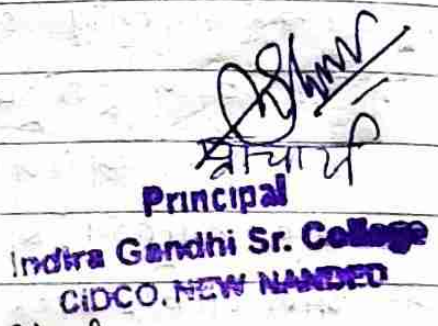 प्राचार्य
Principal
Indira Gandhi Sr. College
CIDCO, NEW NANDED